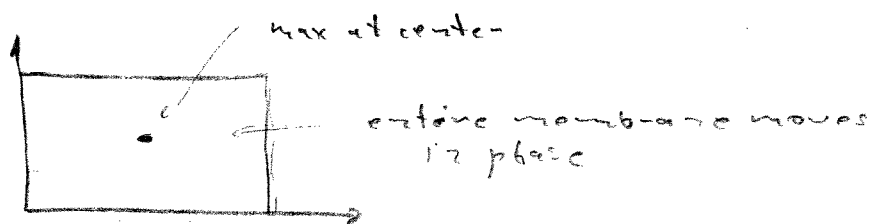 max at center
entire membrane moves
in phase